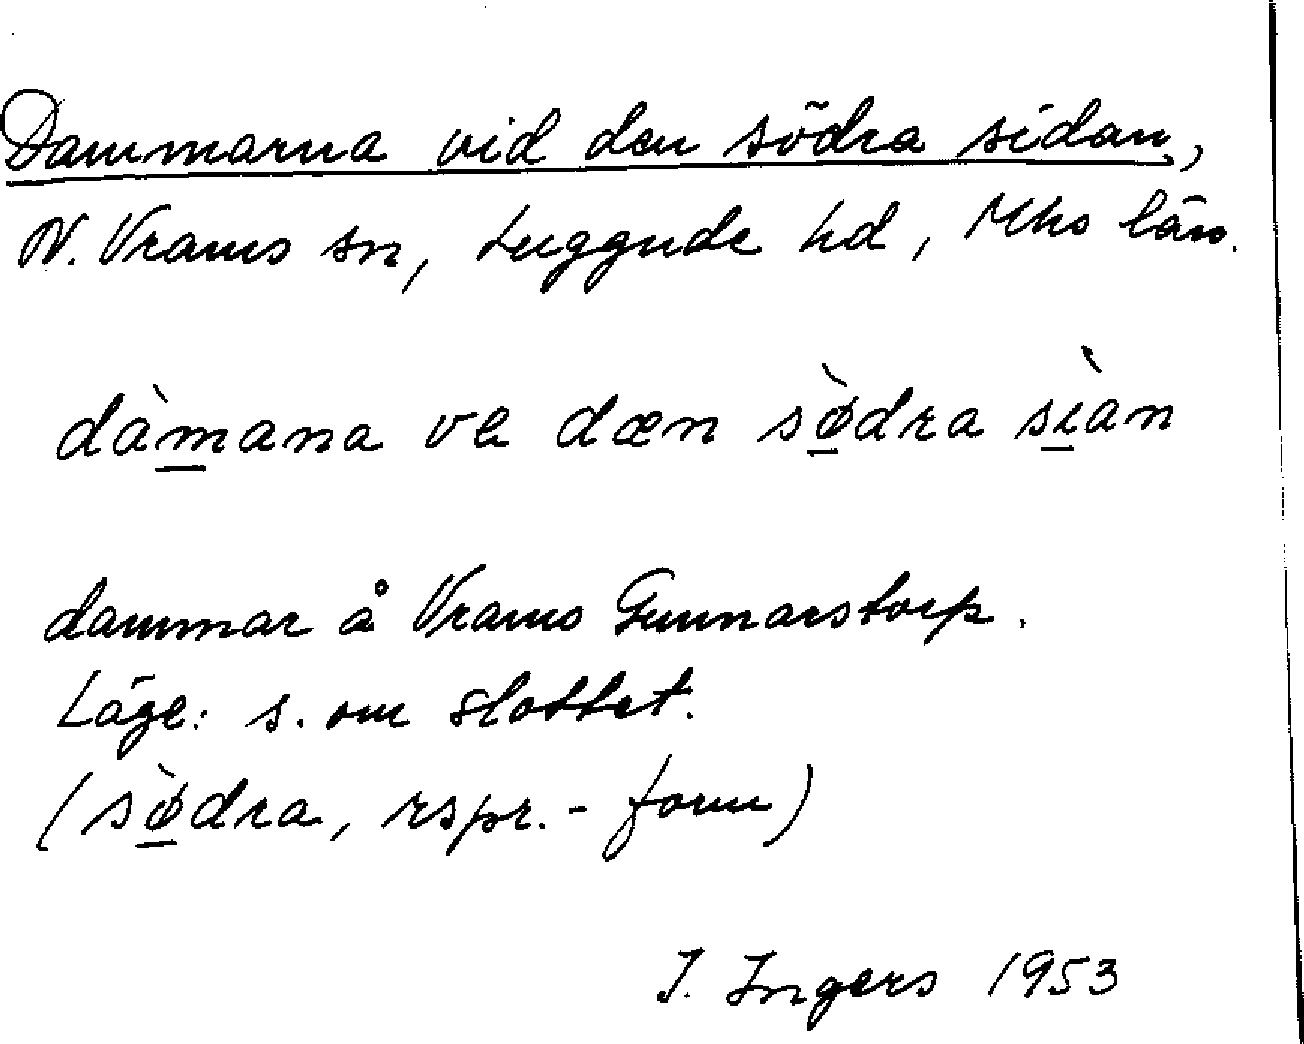 Dammarna vid den södra sidan,
N. Vrams sn, Luggude hd, Mhs län.
dàmana ve dæn sø̀dra sìan
dammar å Vrams Gunnarstorp.
Läge: s. om slottet.
(sø̀dra, rspr.-form)
I. Ingers 1953